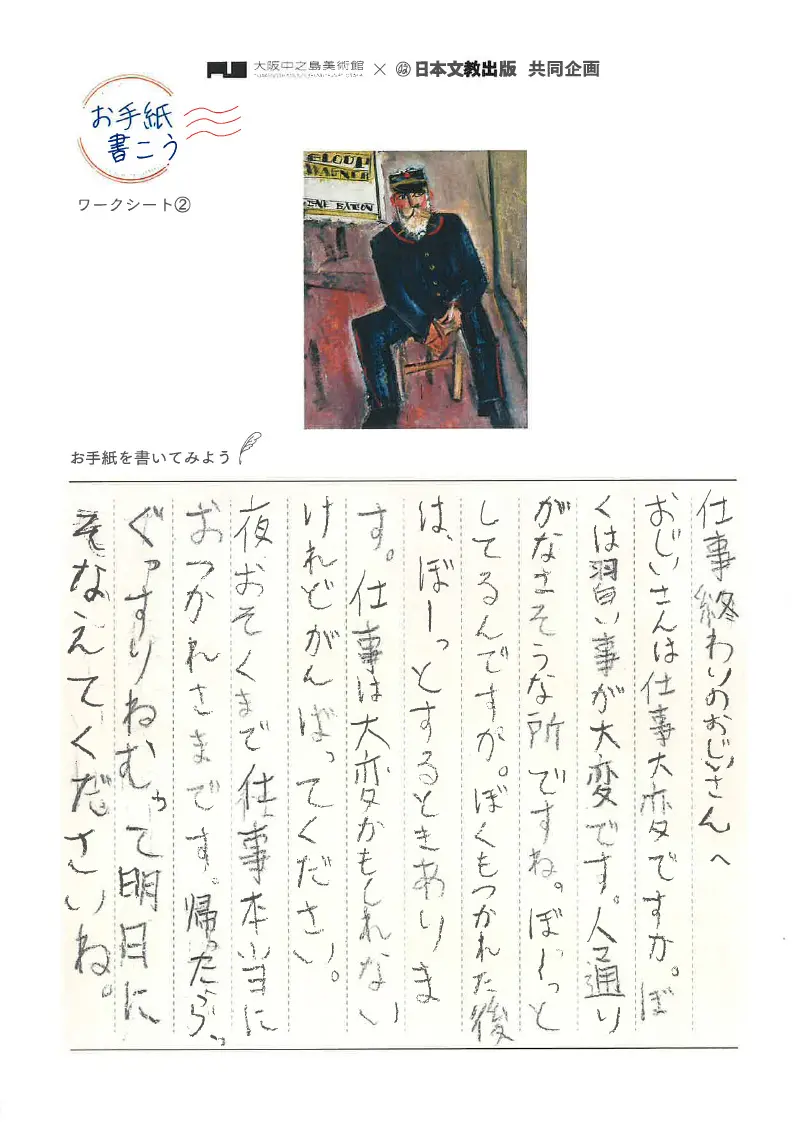 大阪中之島美術館 × 日本文教出版 共同企画
お手紙
書こう
ワークシート②
CLOUP
WAGNER
お手紙を書いてみよう
仕事終わりのおじいさんへ
おじいさんは仕事大変ですか。ぼ
くは習い事が大変です。人通り
がなさそうな所ですね。ぼーっと
してるんですか。ぼくもつかれた後
は、ぼーっとするときありま
す。仕事は大変かもしれない
けれどがんばってください。
夜おそくまで仕事本当に
おつかれさまです。帰ったら、
ぐっすりねむって明日に
そなえてくださいね。